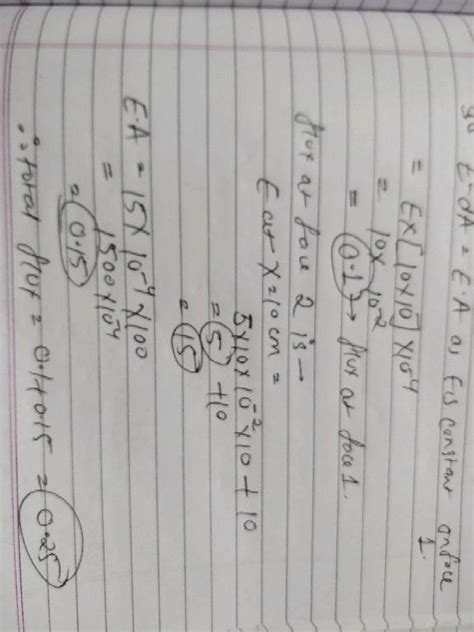 E·dA = E·A as E is constant on face 1.
= E×[10×10]×10⁻⁴
= 10×10⁻²
= 0.1 → flux at face 1.
flux at face 2 is →
E at x=10cm =
5×10×10⁻²×10 + 10
= 5 + 10
= 15
E·A = 15×10⁻⁴×100
= 1500×10⁻⁴
= 0.15
∴ total flux = 0.1+0.15 = 0.25